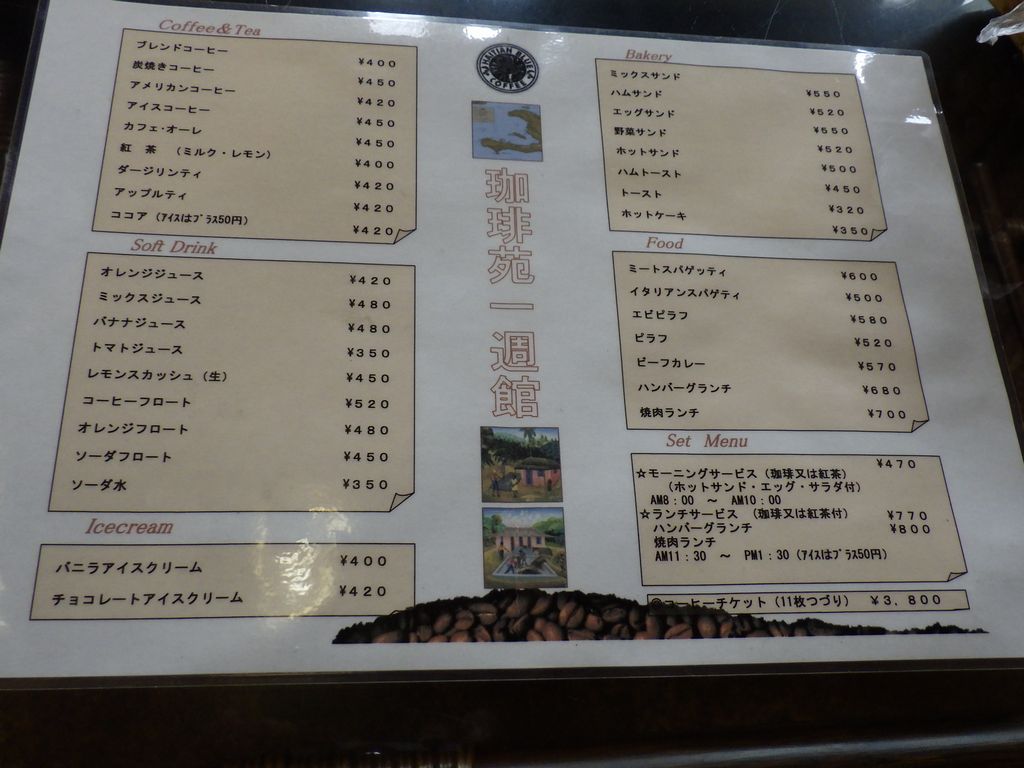 Coffee & Tea
ブレンドコーヒー ¥400
炭焼きコーヒー ¥450
アメリカンコーヒー ¥420
アイスコーヒー ¥450
カフェ・オーレ ¥450
紅 茶 (ミルク・レモン) ¥400
ダージリンティ ¥420
アップルティ ¥420
ココア (アイスはプラス50円) ¥420
Soft Drink
オレンジジュース ¥420
ミックスジュース ¥480
バナナジュース ¥480
トマトジュース ¥350
レモンスカッシュ (生) ¥450
コーヒーフロート ¥520
オレンジフロート ¥480
ソーダフロート ¥450
ソーダ水 ¥350
Icecream
バニラアイスクリーム ¥400
チョコレートアイスクリーム ¥420
HAITIAN BLUE
COFFEE
珈琲苑一週館
Bakery
ミックスサンド ¥550
ハムサンド ¥520
エッグサンド ¥550
野菜サンド ¥520
ホットサンド ¥500
ハムトースト ¥450
トースト ¥320
ホットケーキ ¥350
Food
ミートスパゲッティ ¥600
イタリアンスパゲティ ¥500
エビピラフ ¥580
ピラフ ¥520
ビーフカレー ¥570
ハンバーグランチ ¥680
焼肉ランチ ¥700
Set Menu
☆モーニングサービス (珈琲又は紅茶) ¥470
(ホットサンド・エッグ・サラダ付)
AM8:00 ～ AM10:00
☆ランチサービス (珈琲又は紅茶付)
ハンバーグランチ ¥770
焼肉ランチ ¥800
AM11:30 ～ PM1:30 (アイスはプラス50円)
◎コーヒーチケット (11枚つづり) ¥3,800